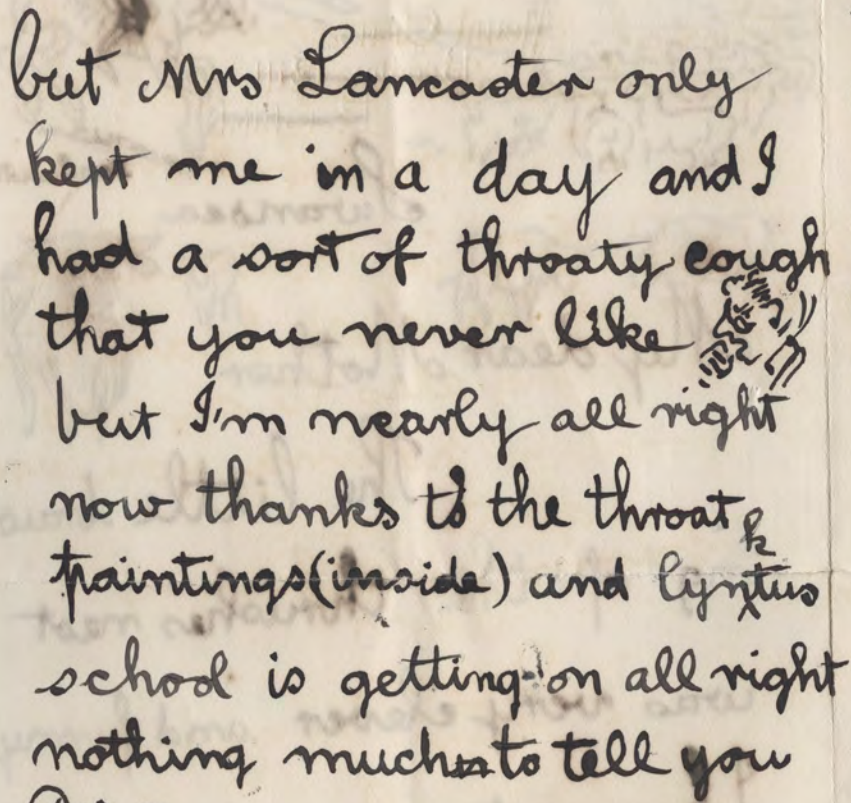 but Mrs Lancaster only
kept me in a day and I
had a sort of throaty cough
that you never like
but I'm nearly all right
now thanks to the throat
paintings(inside) and lynktus
school is getting on all right
nothing much to tell you